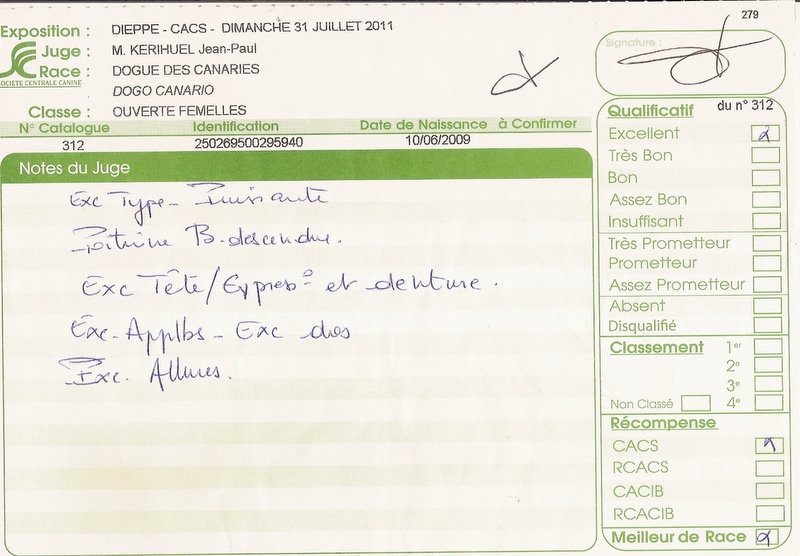 279
Exposition : DIEPPE - CACS - DIMANCHE 31 JUILLET 2011
Juge : M. KERIHUEL Jean-Paul
Race : DOGUE DES CANARIES
SOCIETE CENTRALE CANINE
DOGO CANARIO
Classe : OUVERTE FEMELLES
N° Catalogue Identification Date de Naissance à Confirmer
312 250269500295940 10/06/2009
Notes du Juge
Exc Type - Puissante
Poitrine B. descendue.
Exc Tête/Express° et denture.
Exc. Applbs - Exc dos
Exc. Allures.
Signature :
Qualificatif du n° 312
Excellent
Très Bon
Bon
Assez Bon
Insuffisant
Très Prometteur
Prometteur
Assez Prometteur
Absent
Disqualifié
Classement 1er
2e
3e
Non Classé 4e
Récompense
CACS
RCACS
CACIB
RCACIB
Meilleur de Race